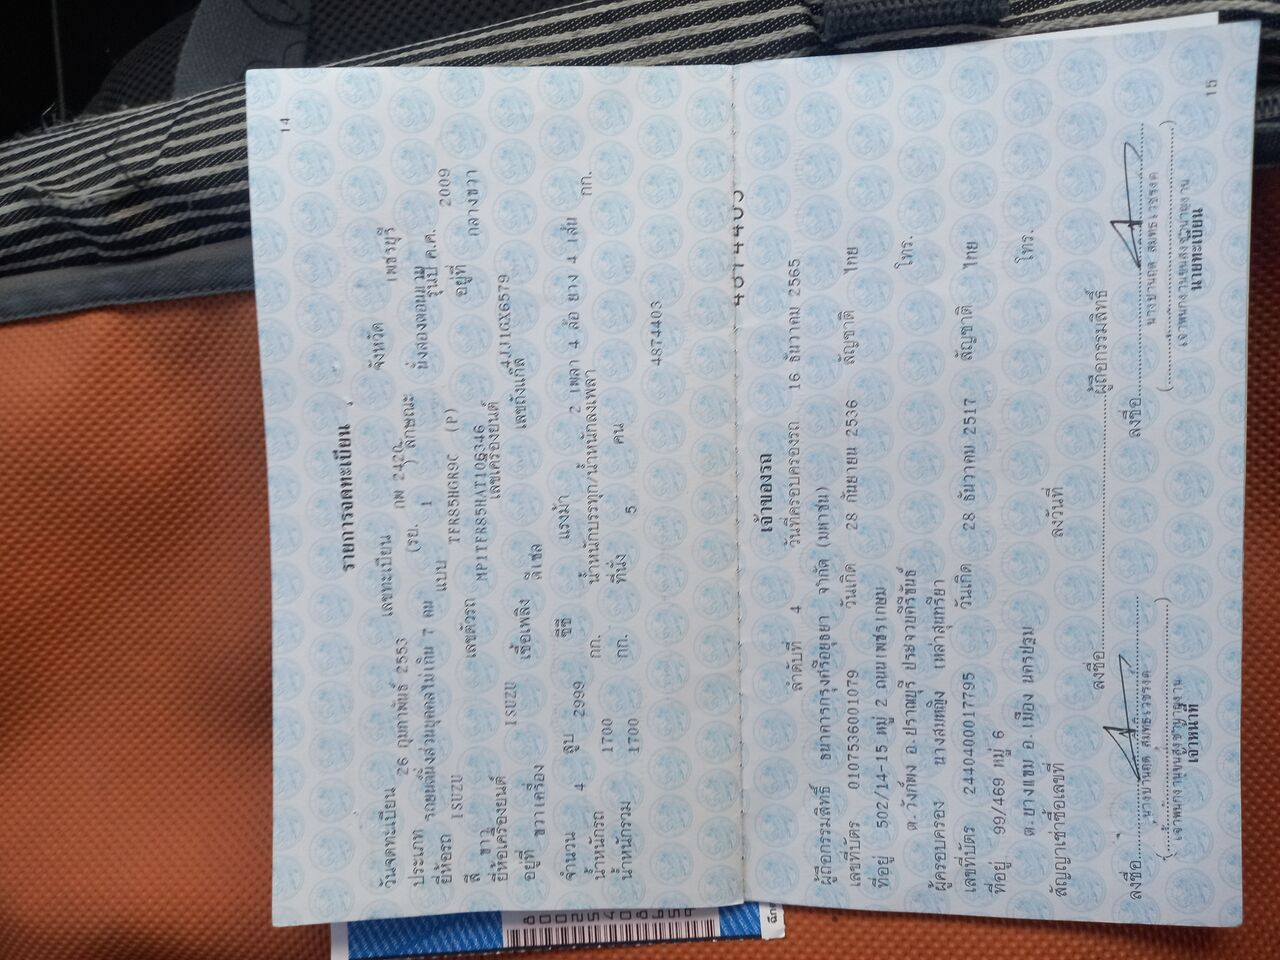 14
รายการจดทะเบียน
วันจดทะเบียน 26 กุมภาพันธ์ 2553 เลขทะเบียน กพ 2420 จังหวัด เพชรบุรี
ประเภท รถยนต์นั่งส่วนบุคคลไม่เกิน 7 คน (รย. 1 ) ลักษณะ นั่งสองตอนแวน
ยี่ห้อรถ ISUZU แบบ TFR85HGR9C (P) รุ่นปี ค.ศ. 2009
สี ขาว เลขตัวรถ MP1TFR85HAT106346 อยู่ที่ กลางขวา
ยี่ห้อเครื่องยนต์ ISUZU เลขเครื่องยนต์ 4JJ1GX6579
อยู่ที่ ขวาเครื่อง เชื้อเพลิง ดีเซล เลขถังแก๊ส
จำนวน 4 สูบ 2999 ซีซี แรงม้า 2 เพลา 4 ล้อ ยาง 4 เส้น
น้ำหนักรถ 1700 กก. น้ำหนักบรรทุก/น้ำหนักลงเพลา กก.
น้ำหนักรวม 1700 กก. ที่นั่ง 5 คน
4874403
4874403
เจ้าของรถ
ลำดับที่ 4 วันที่ครอบครองรถ 16 ธันวาคม 2565
ผู้ถือกรรมสิทธิ์ ธนาคารกรุงศรีอยุธยา จำกัด (มหาชน)
เลขที่บัตร 0107536001079 วันเกิด 28 กันยายน 2536 สัญชาติ ไทย
ที่อยู่ 502/14-15 หมู่ 2 ถนนเพชรเกษม
ต.วังก์พง อ.ปราณบุรี ประจวบคีรีขันธ์ โทร.
ผู้ครอบครอง นางสมหญิง เหล่าสุนทรียา
เลขที่บัตร 2440400017795 วันเกิด 28 ธันวาคม 2517 สัญชาติ ไทย
ที่อยู่ 99/469 หมู่ 6
ต.บางแขม อ.เมือง นครปฐม โทร.
สัญญาเช่าซื้อเลขที่ ลงวันที่
ลงชื่อ ผู้ถือกรรมสิทธิ์
ลงชื่อ ลงชื่อ
เจ้าหน้าที่ นายทะเบียน
15